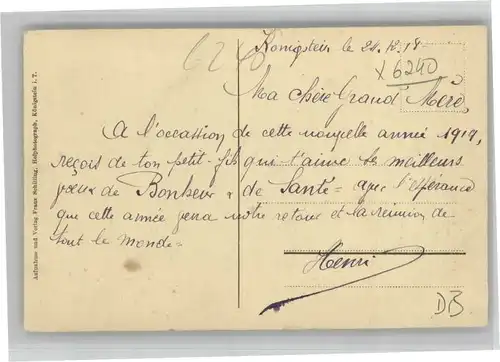 6240
Königstein le 24.12.18
x 6240
Ma chère Grand Mère,
A l'occasion de cette nouvelle année 1919,
reçois de ton petit-fils qui t'aime les meilleurs
voeux de Bonheur & de Santé = avec l'espérance
que cette année fera notre retour et la réunion de
tout le monde =
Henri
DB
Aufnahme und Verlag Franz Schilling, Hofphotograph, Königstein i. T.